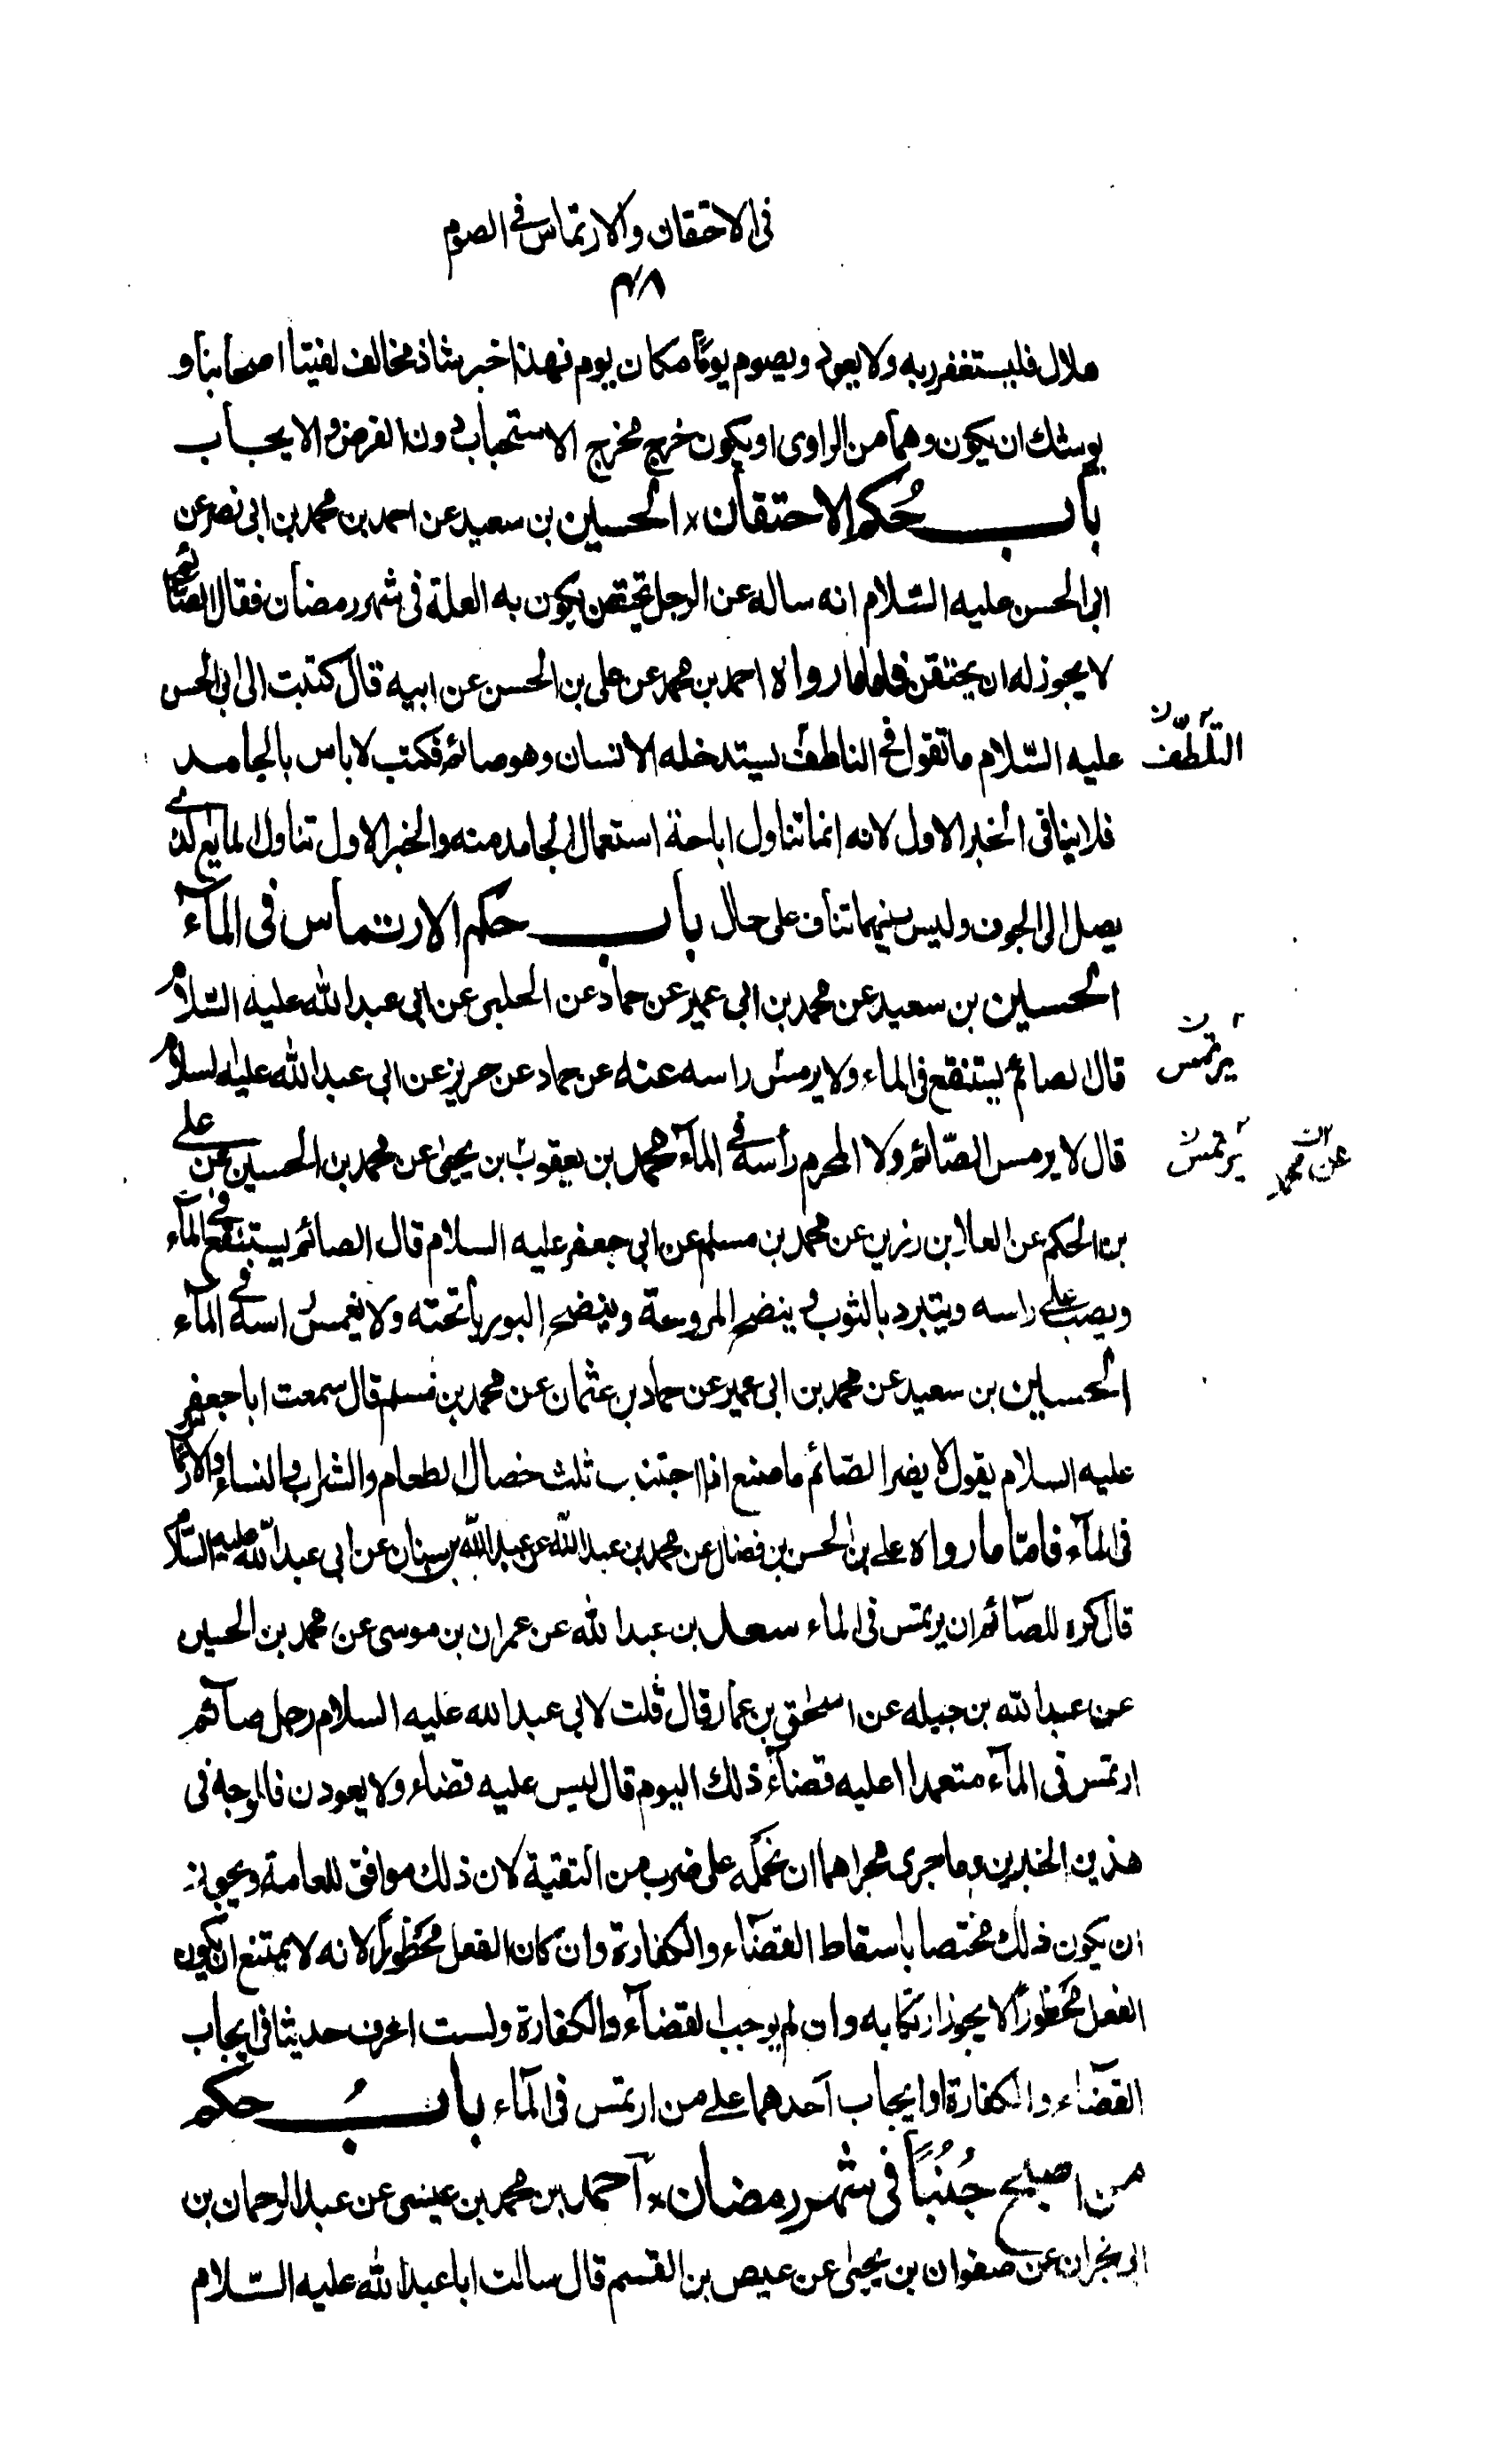 في الاحتقان والارتماس في الصوم
٤٨
هلال فليستغفر ربه ولا يعود ويصوم يومًا مكان يوم فهذا خبر شاذ مخالف لفتيا اصحابنا و
يوشك ان يكون وهما من الراوى او يكون خرج مخرج الاستحباب دون الفرض والايجاب
باب حُكم الاحتقان الحسين بن سعيد عن احمد بن محمد بن ابى نصر عن
ابى الحسن عليه السّلام انه ساله عن الرجل يحتقن يكون به العلة فى شهر رمضان فقال الصّائم
لا يجوز له ان يحتقن فاما ما رواه احمد بن محمد عن على بن الحسن عن ابيه قال كتبت الى ابى الحسن
عليه السّلام ما تقول فى الناطف يستدخله الانسان وهو صائم فكتب لا باس بالجامد
التلطّف ن
فلا ينافى الخبر الاول لانه انما تناول اباحة استعمال الجامد منه والخبر الاول تناول المايع الذى
يصل الى الجوف وليس بينهما تناف على حال باب حكم الارتماس فى المآء
الحسين بن سعيد عن محمد بن ابى عمير عن حماد عن الحلبى عن ابى عبد الله عليه السّلام
قال الصائم يستنقع فى الماء ولا يرمس راسه عنه عن حماد عن حريز عن ابى عبد الله عليه السلام
يرتمس ن
قال لا يرمس الصّائم ولا المحرم رأسه فى المآء محمد بن يعقوب بن يحيى عن محمد بن الحسين عن على
يرتمس ن
عن محمد ن
بن الحكم عن العلا بن رزين عن محمد بن مسلم عن ابى جعفر عليه السلام قال الصائم يستنقع فى المآء
ويصب على راسه ويتبرد بالثوب و ينضح المروحة وينضح البوريا تحته ولا يغمس راسه فى المآء
الحسين بن سعيد عن محمد بن ابى عمير عن حماد بن عثمان عن محمد بن مسلم قال سمعت ابا جعفر
عليه السلام يقول لا يضر الصّائم ما صنع اذا اجتنب ثلث خصال الطعام والشراب والنساء والارتماس
فى المآء فامّا ما رواه على بن الحسن بن فضال عن محمد بن عبد الله عن عبد الله بن سنان عن ابى عبد الله عليه السّلام
قال كره للصّائم ان يرتمس فى الماء سعد بن عبد الله عن عمران بن موسى عن محمد بن الحسين
عن عبد الله بن جبله عن اسحق بن عمار قال قلت لابى عبد الله عليه السلام رجل صآئم
ارتمس فى المآء متعمدا اعليه قضآء ذلك اليوم قال ليس عليه قضاء ولا يعودن فالوجه فى
هذين الخبرين وما جرى مجراهما ان نحمله على ضرب من التقية لان ذلك موافق للعامة ويجوز
ان يكون ذلك مختصا باسقاط القضآء والكفارة وان كان الفعل محظورًا لانه لا يمتنع ان يكون
الفعل محظورًا لا يجوز ارتكابه وان لم يوجب القضآء والكفارة ولست اعرف حديثا فى ايجاب
القضآء والكفارة او ايجاب احدهما على من ارتمس فى المآء بابُ حكم
من اصبح جُنُبًا فى شهر رمضان احمد بن محمد بن عيسى عن عبد الرحمان بن
ابى نجران عن صفوان بن يحيى عن عيص بن القسم قال سالت ابا عبد الله عليه السّلام